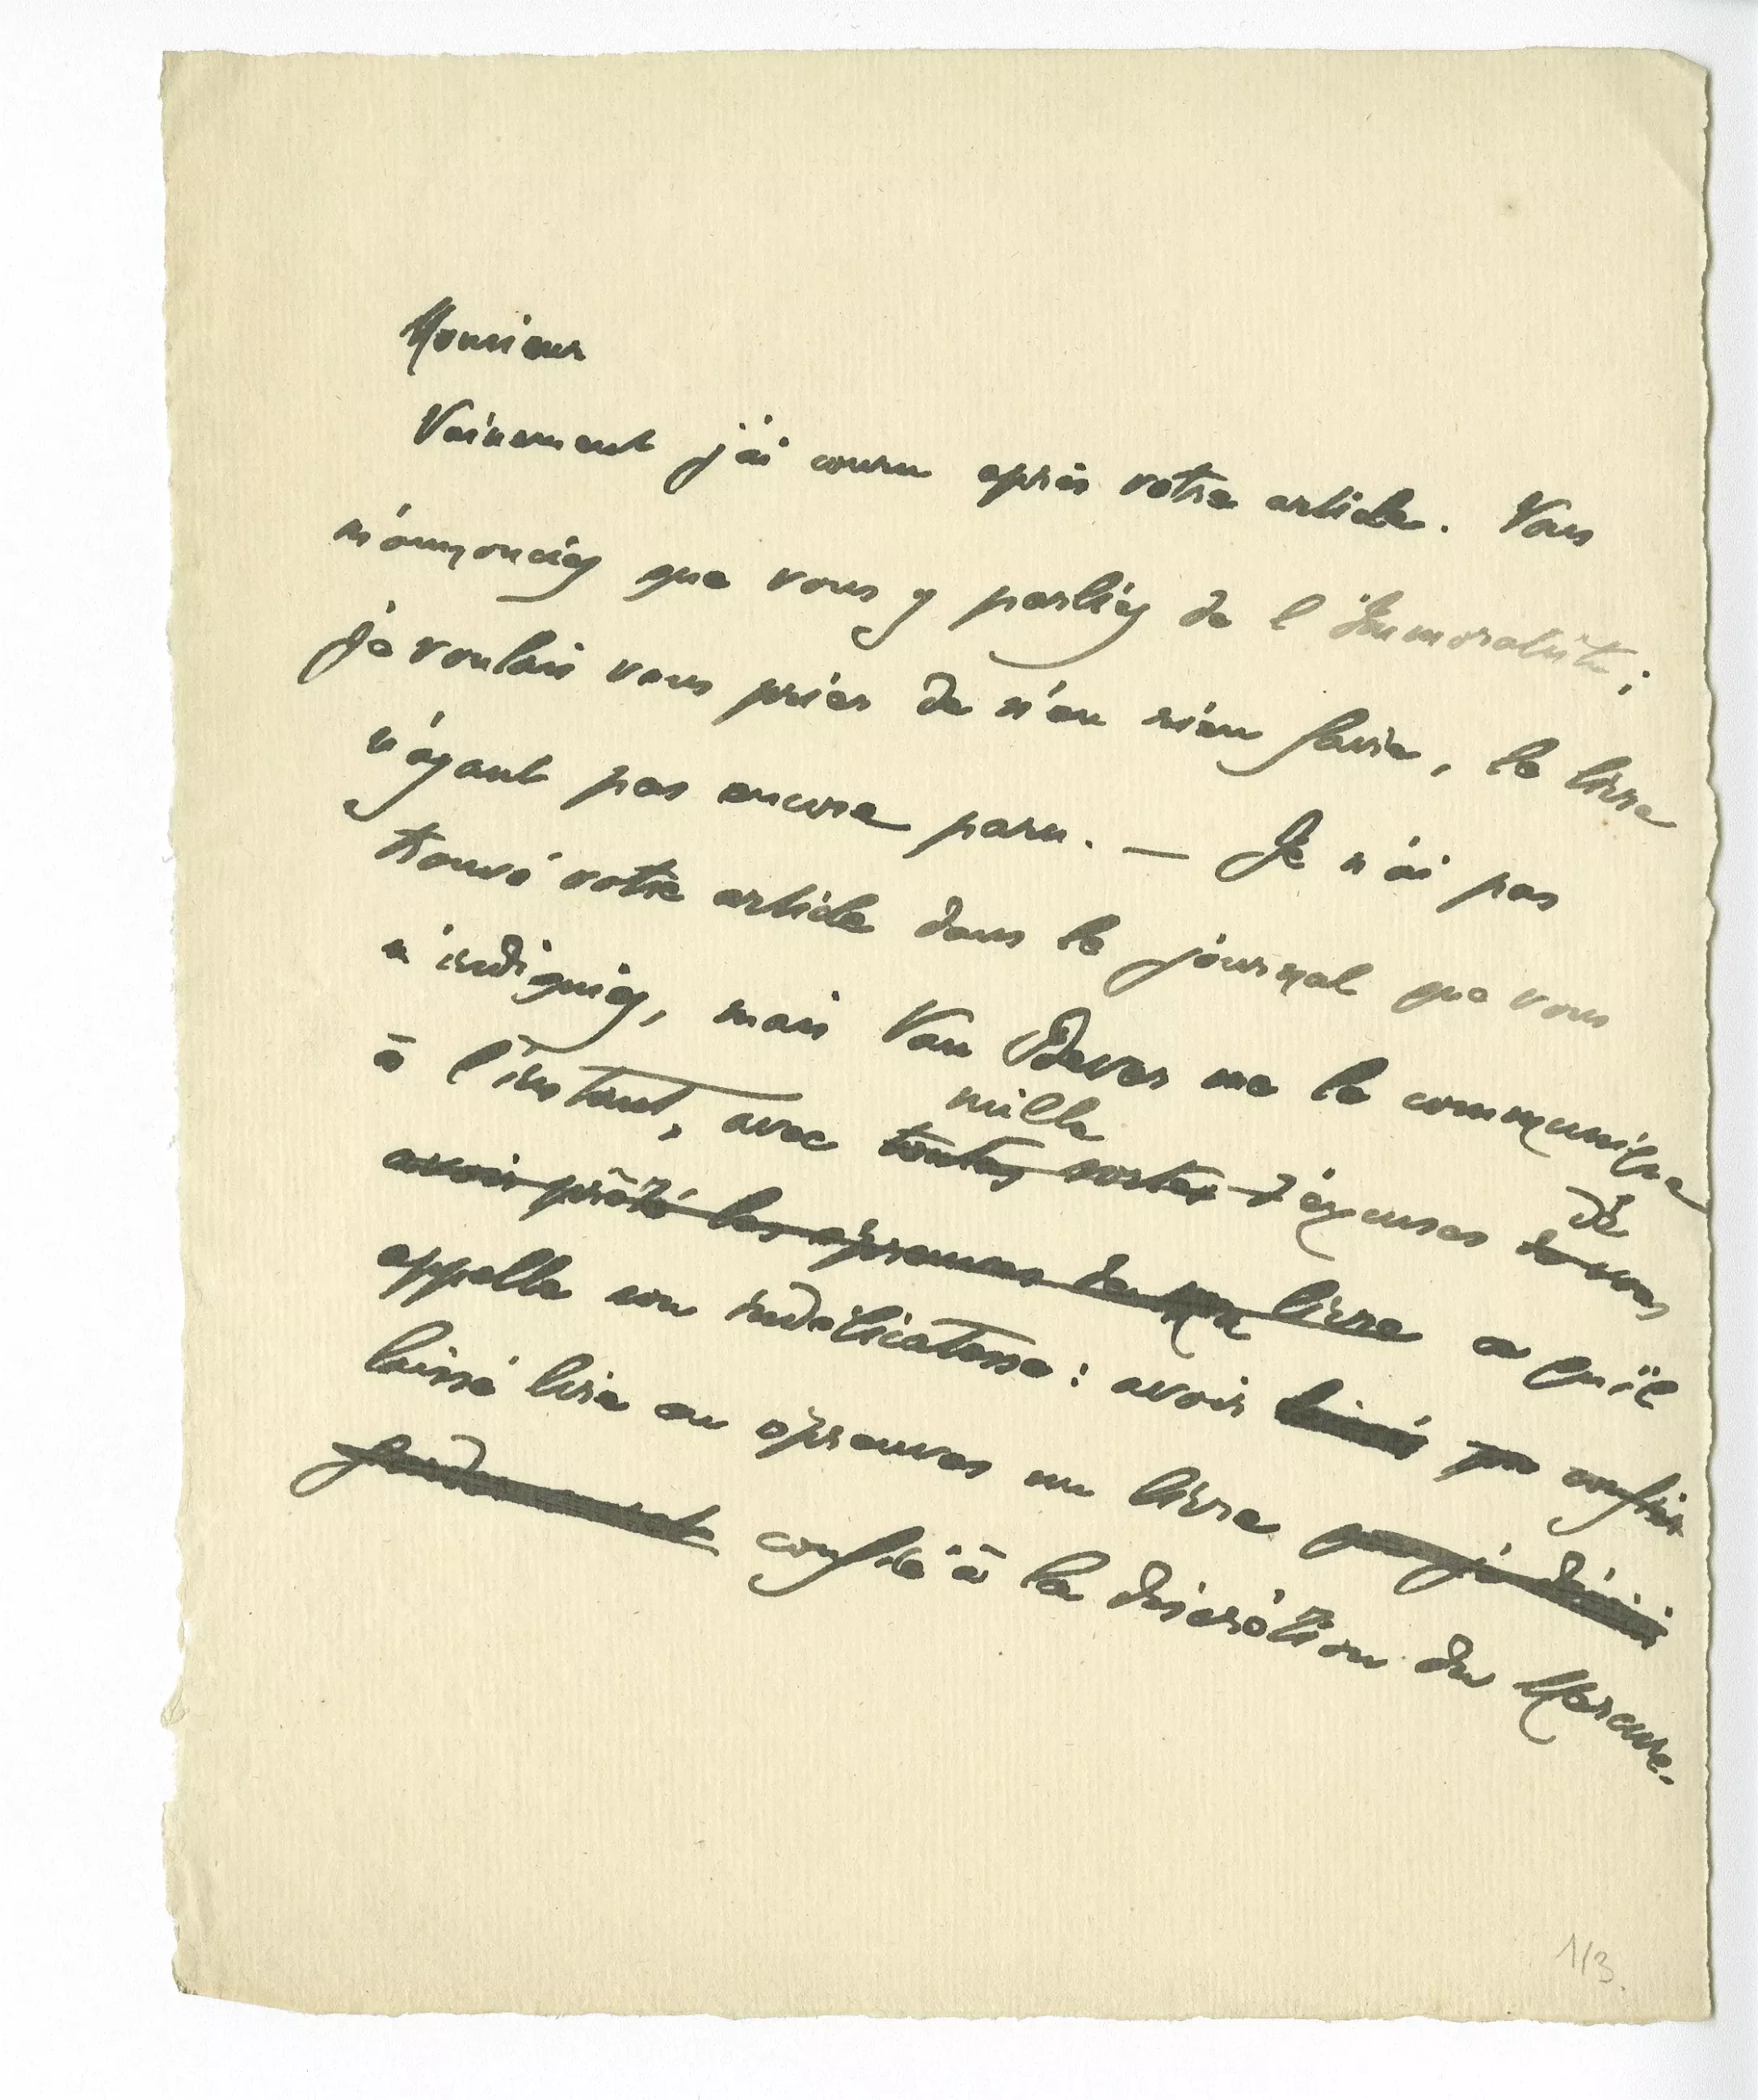 Monsieur
Vainement j'ai couru après votre article. Vous
m'annonciez que vous y parliez de l'Immoraliste ;
je voulais vous prier de n'en rien faire, le livre
n'ayant pas encore paru. — Je n'ai pas
trouvé votre article dans le journal que vous
m'indiquiez, mais Van Bever me le communique
à l'instant, avec toutes sortes mille d'excuses de vous de
avoir prêté les épreuves de mon livre ce qu'il
appelle son indélicatesse : avoir laissé confié
laissé lire en épreuves un livre que j'ai
confié à la discrétion du Mercure.
1/3.